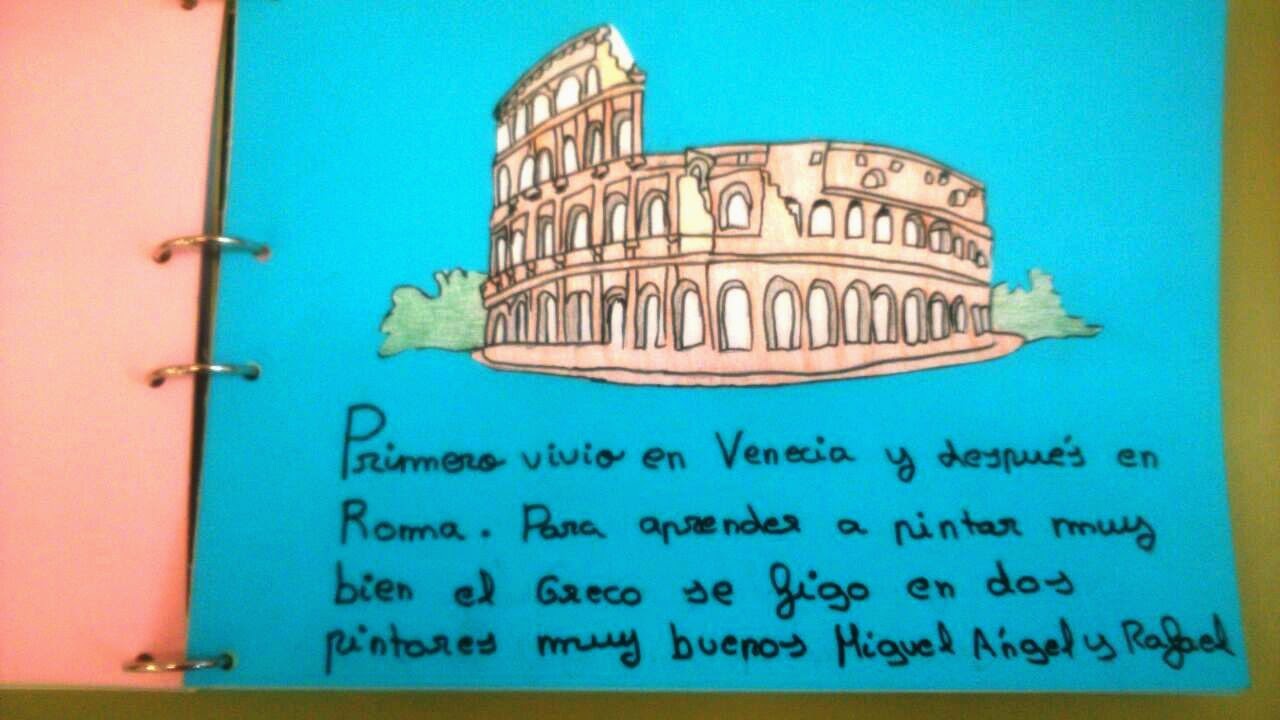 Primero vivio en Venecia y después en
Roma. Para aprender a pintar muy
bien el Greco se figo en dos
pintores muy buenos Miguel Ángel y Rafael